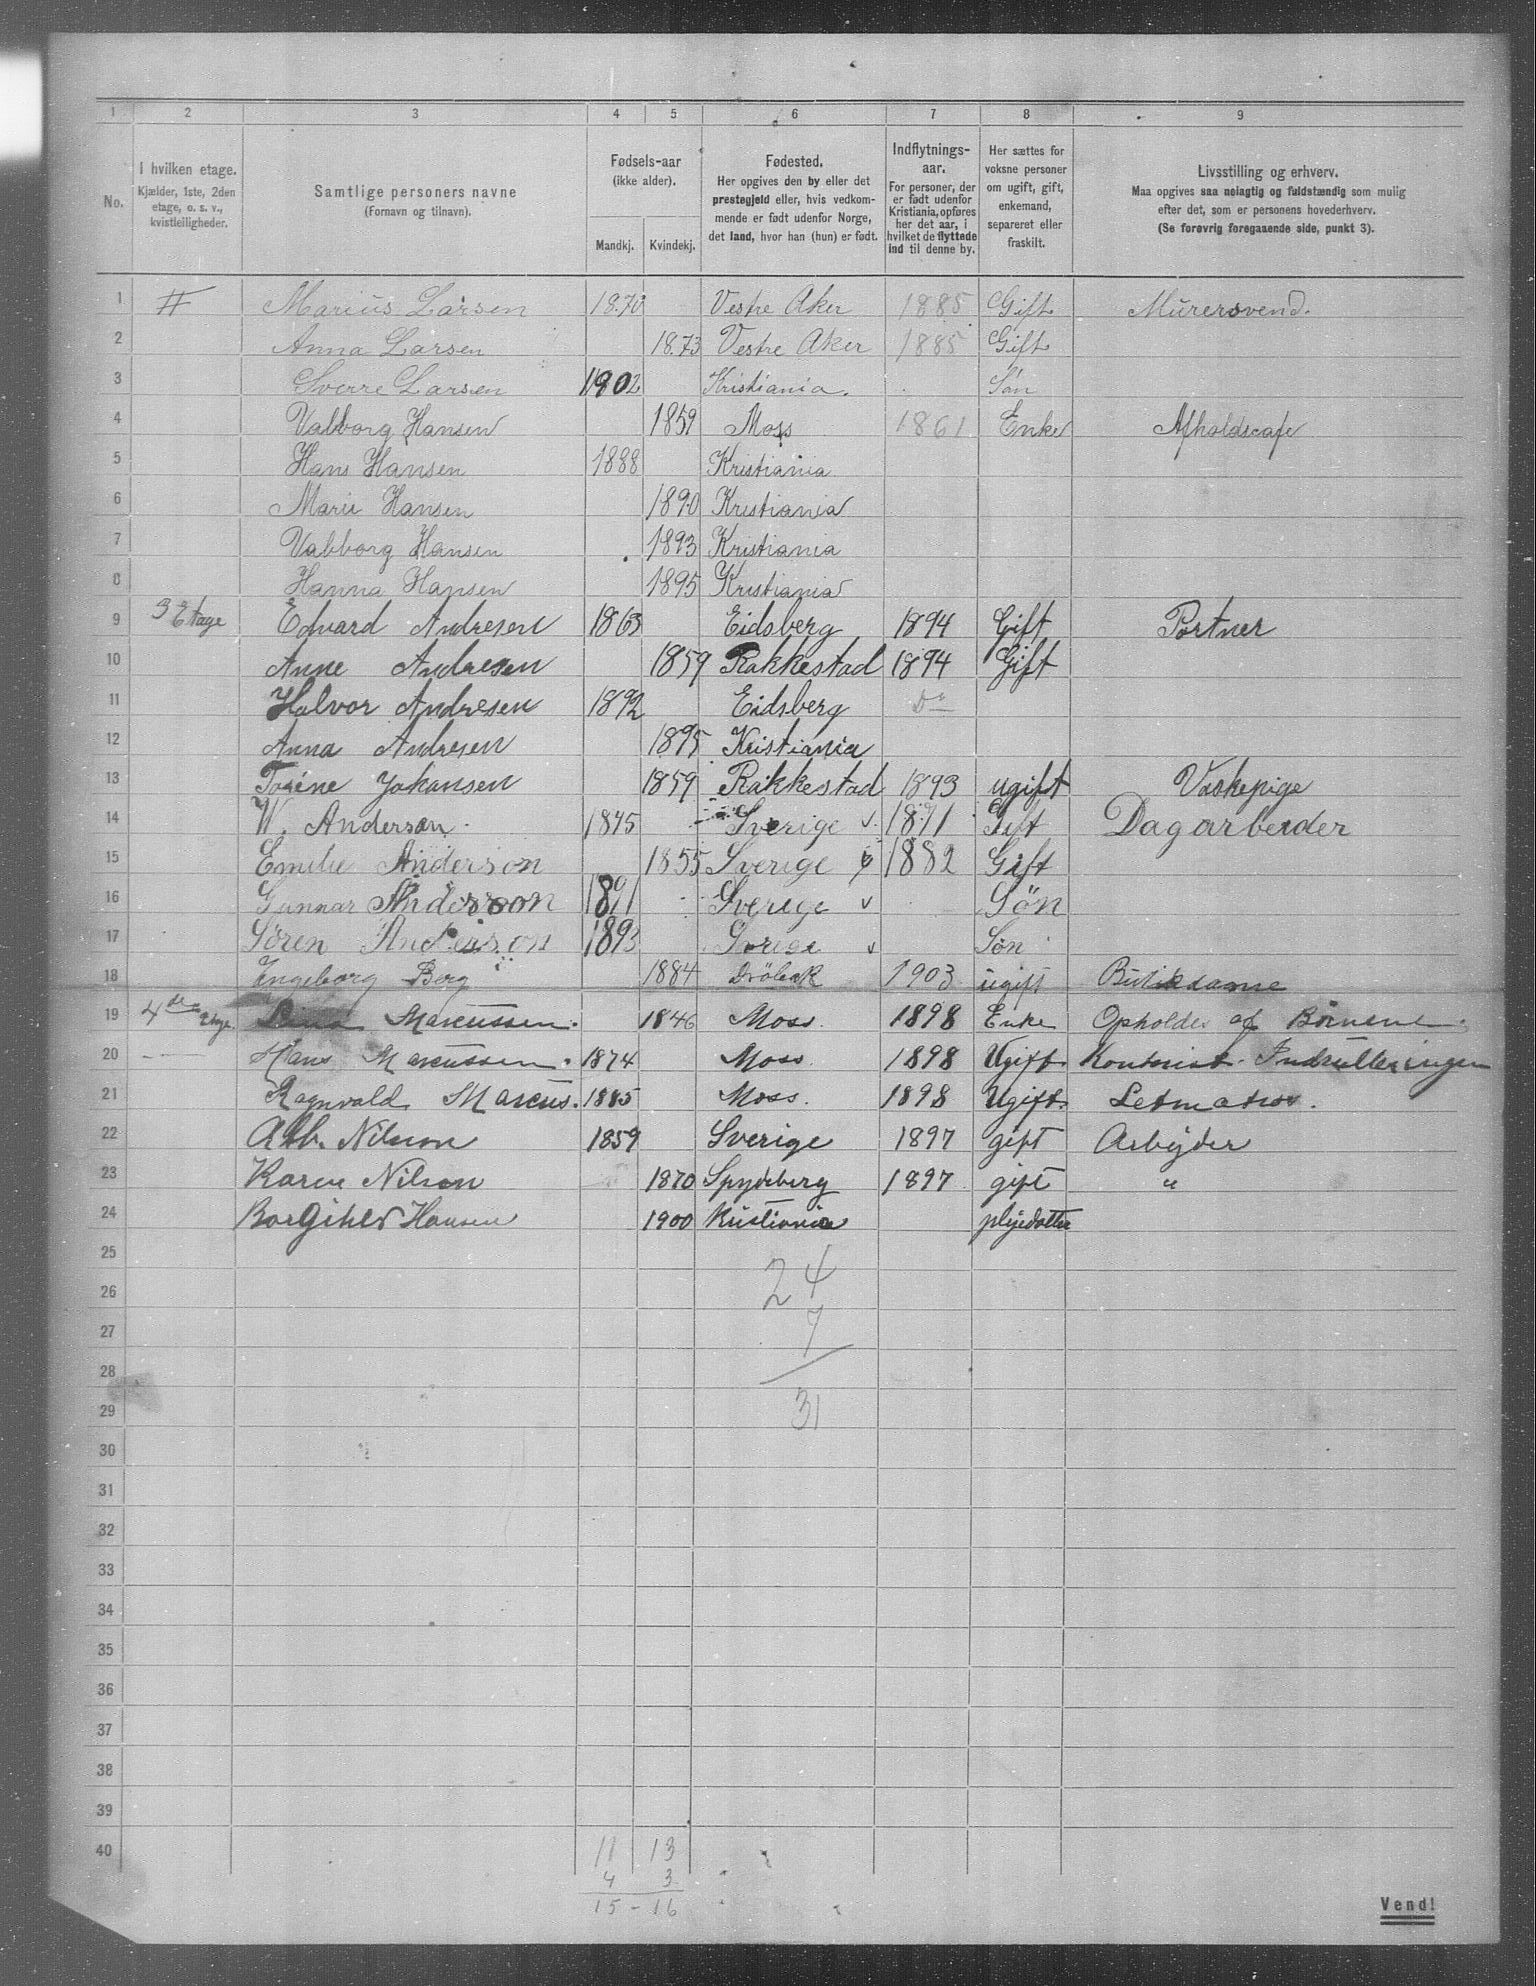 1 2 3 4 5 6 7 8 9
No.
I hvilken etage.
Kjælder, 1ste, 2den
etage, o. s. v.,
kvistleiligheder.
Samtlige personers navne
(Fornavn og tilnavn).
Fødsels-aar
(ikke alder).
Mandkj. Kvindekj.
Fødested.
Her opgives den by eller det
prestegjeld eller, hvis vedkom-
mende er født udenfor Norge,
det land, hvor han (hun) er født.
Indflytnings-
aar.
For personer, der
er født udenfor
Kristiania, opføres
her det aar, i
hvilket de flyttede
ind til denne by.
Her sættes for
voksne personer
om ugift, gift,
enkemand,
separeret eller
fraskilt.
Livsstilling og erhverv.
Maa opgives saa nøiagtig og fuldstændig som mulig
efter det, som er personens hovederhverv.
(Se forøvrig foregaaende side, punkt 3).
1 Marius Larsen 1870 Vestre Aker 1885 Gift Murersvend.
2 Anna Larsen 1873 Vestre Aker 1885 Gift
3 Sverre Larsen 1902 Kristiania. Søn
4 Valborg Hansen 1859 Moss 1861 Enke Afholdscafe
5 Hans Hansen 1888 Kristiania
6 Marie Hansen 1890 Kristiania
7 Valborg Hansen 1893 Kristiania
8 Hanna Hansen 1895 Kristiania
9 3 Etage Edvard Andresen 1863 Eidsberg 1894 Gift Portner
10 Anne Andresen 1859 Rakkestad 1894 Gift
11 Halvor Andresen 1892 Eidsberg Do
12 Anna Andresen 1895 Kristiania
13 Torine Johansen 1859 Rakkestad 1893 ugift Vaskepige
14 W. Anderson 1845 Sverige 1871 Gift Dagarbeider
15 Emilie Anderson 1855 Sverige 1882 Gift
16 Gunnar Anderson 1891 Sverige Søn
17 Sören Anderson 1893 Sverige Søn
18 Ingeborg Berg 1884 Dröbak 1903 ugift Butikdame
19 4de Etage Marcussen. 1846 Moss. 1898 Enke Opholdes af Børnene.
20 Hans Marcussen. 1874 Moss. 1898 Ugift Kontorist. Indrulleringen
21 Ragnvald Marcus. 1885 Moss. 1898 Ugift. Letmatros.
22 Alb. Nilson 1859 Sverige 1897 gift Arbejder
23 Karen Nilson 1870 Spydeberg 1897 gift "
24 Borgihld Hansen 1900 Kristiania plejedatter
25
26 24
27 7
28
29 31
30
31
32
33
34
35
36
37
38
39
40 11 13
4 3
15 - 16
Vend!